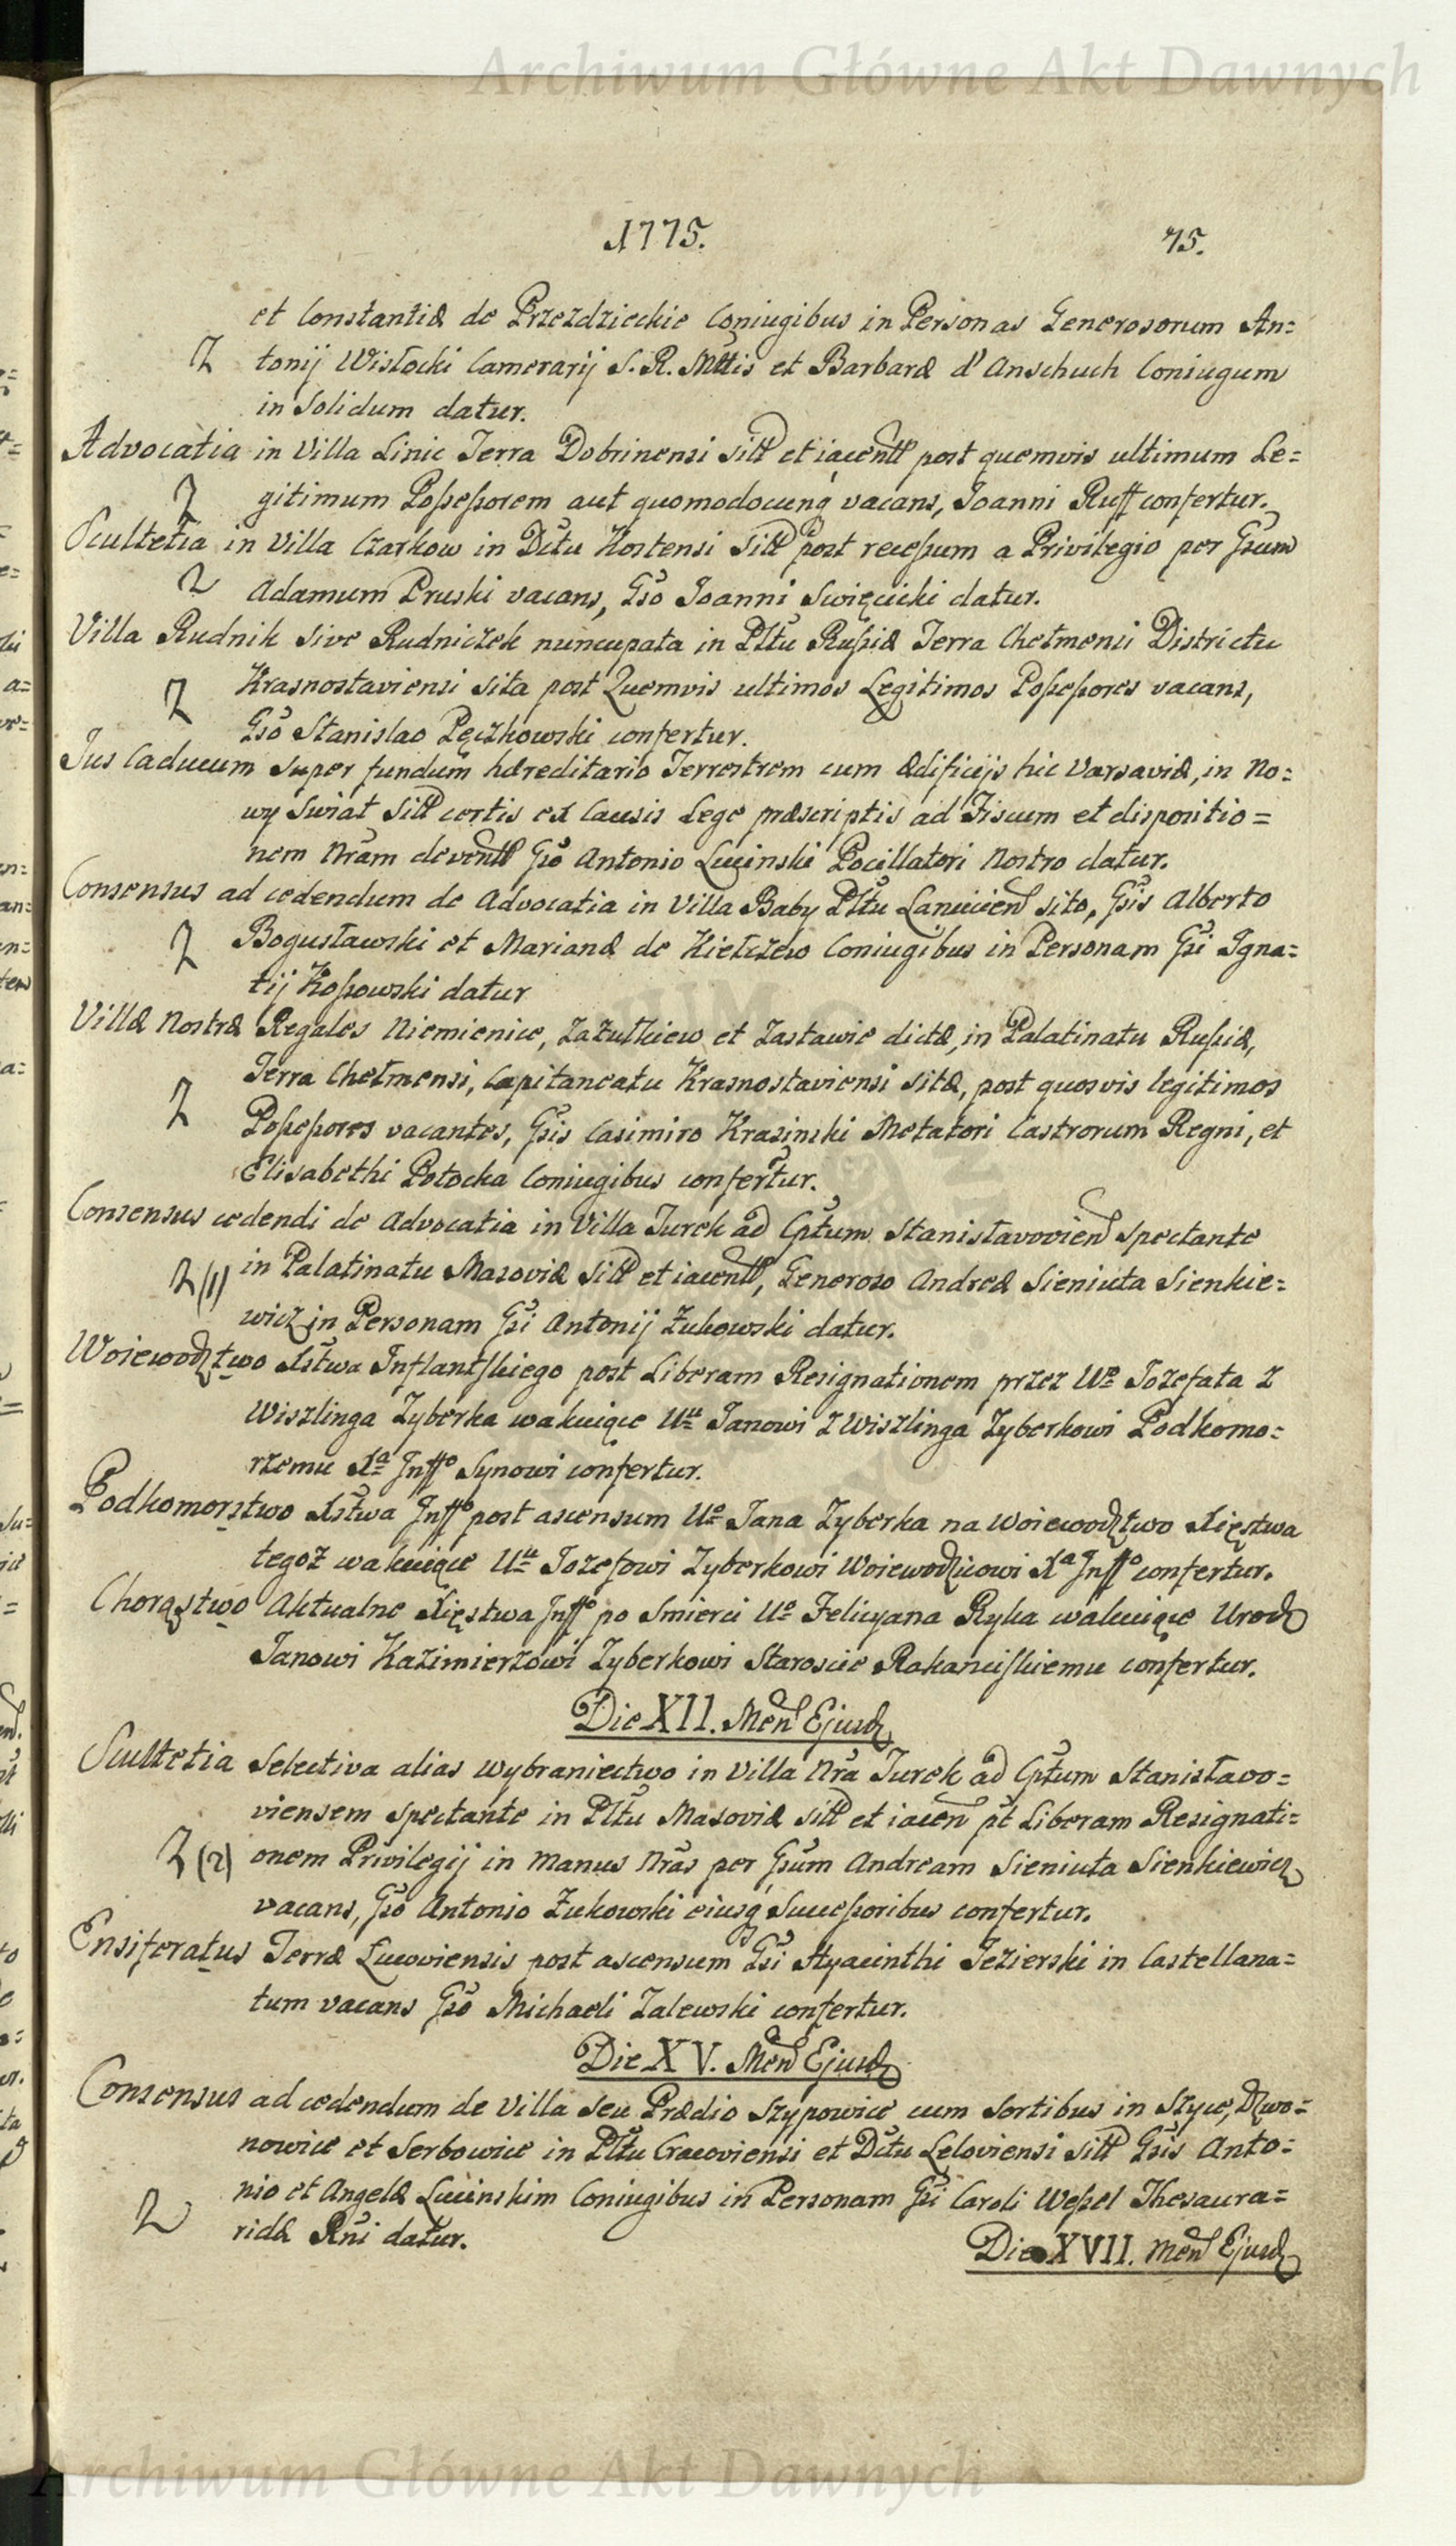 Archiwum Główne Akt Dawnych
1775.
75.
et Constantiæ de Przezdzieckie Coniugibus in Personas Generosorum An=
2 tonij Wisłocki Camerarij S. R. Mttis et Barbaræ d'Anschuch Coniugum
in Solidum datur.
Advocatia in Villa Linie Terra Dobrinensi sitt et iacentt post quemvis ultimum Le=
2 gitimum Poßeßorem aut quomodocunq vacans, Joanni Ruff confertur.
Scultetia in Villa Czarkow in Dctu Kostensi sitt post receßum a Privilegio per Gsum
2 Adamum Pruski vacans, Gso Joanni Swięcicki datur.
Villa Rudnik sive Rudniczek nuncupata in Pltu Rußiæ Terra Chełmensi Districtu
2 Krasnostaviensi sita post Quemvis ultimos Legitimos Poßeßores vacans,
Gso Stanislao Pęczkowski confertur.
Jus Caducum super fundum hæreditario Terrestrem cum ædificijs hic Varsaviæ, in No=
wy Swiat sitt certis ex Causis Lege præscriptis ad Fiscum et dispositio=
nem Nram deventt Gso Antonio Lucinski Pocillatori Nostro datur.
Consensus ad cedendum de Advocatia in Villa Baby Pltu Lancicien sito, Gsis Alberto
2 Bogusławski et Marianæ de Kiełczew Coniugibus in Personam Gsi Igna=
tij Koßowski datur
Villæ Nostræ Regales Niemienice, Zażułkiew et Zastawie dictæ, in Palatinatu Rußiæ,
2 Terra Chełmensi, Capitaneatu Krasnostaviensi sitæ, post quosvis legitimos
Poßeßores vacantes, Gsis Casimiro Krasinski Metatori Castrorum Regni, et
Elisabethi Potocka Coniugibus confertur.
Consensus cedendi de Advocatia in Villa Turek ad Cptum Stanisłavovien spectante
2 (1) in Palatinatu Masoviæ sitt et iacentt, Generoso Andreæ Sieniuta Sienkie=
wicz in Personam Gsi Antonij Żukowski datur.
Woiewodztwo Xstwa Inflantskiego post Liberam Resignationem przez Uo Jozefata z
Wiszlinga Zyberka wakuiące Uu Janowi z Wiszlinga Zyberkowi Podkomo=
rzemu Xa Inffo Synowi confertur.
Podkomorstwo Xstwa Inffo post ascensum Uo Jana Zyberka na Woiewodztwo Xięstwa
tegoż wakuiące Uu Jozefowi Zyberkowi Woiewodzicowi Xa Inffo confertur.
Chorąstwo Aktualne Xięstwa Inffo po Smierci Uo Felicyana Ryka wakuiące Urodz
Janowi Kazimierzowi Zyberkowi Staroscie Rakanciskiemu confertur.
Die XII. Men Ejusd
Scultetia Selectiva alias wybraniectwo in Villa Nra Turek ad Cptum Stanisłavo=
viensem spectante in Pltu Masoviæ sitt et iacen pt Liberam Resignati=
2 (2) onem Privilegij in manus Nras per Gsum Andream Sieniuta Sienkiewicz
vacans, Gso Antonio Żukowski eiusq Succeßoribus confertur.
Ensiferatus Terræ Lucoviensis post ascensum Gsi Hyacinthi Jezierski in Castellana=
tum vacans Gso Michaeli Zalewski confertur.
Die XV. Men Ejusd
Consensus ad cedendum de Villa seu Prædio Szypowice cum Sortibus in Szyce, Dzwo=
nowice et Serbowice in Pltu Cracoviensi et Dctu Leloviensi sitt Gsis Anto=
nio et Angelæ Lucinskim Coniugibus in Personam Gsi Caroli Weßel Thesaura=
2 ridæ Rni datur.
Die XVII. Men Ejusd
Archiwum Główne Akt Dawnych